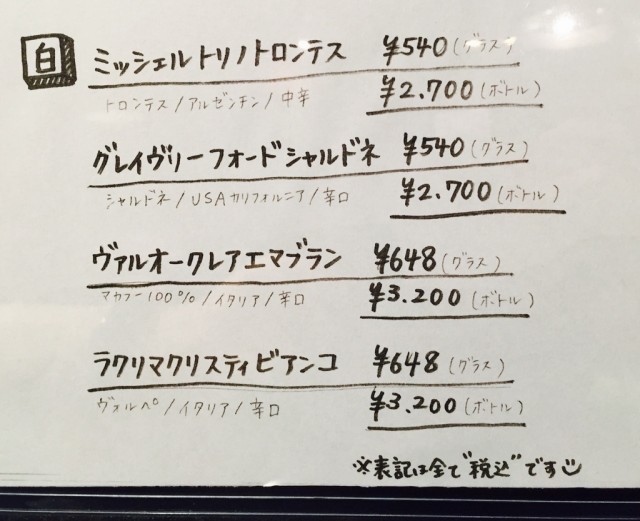 白 ミッシェルトリノトロンテス ¥540(グラス)
トロンテス/アルゼンチン/中辛 ¥2.700(ボトル)
グレイヴリーフォードシャルドネ ¥540(グラス)
シャルドネ/USAカリフォルニア/辛口 ¥2.700(ボトル)
ヴァルオークレアエマブラン ¥648(グラス)
マカブー100%/イタリア/辛口 ¥3.200(ボトル)
ラクリマクリスティビアンコ ¥648(グラス)
ヴォルペ/イタリア/辛口 ¥3.200(ボトル)
※表記は全て"税込"です